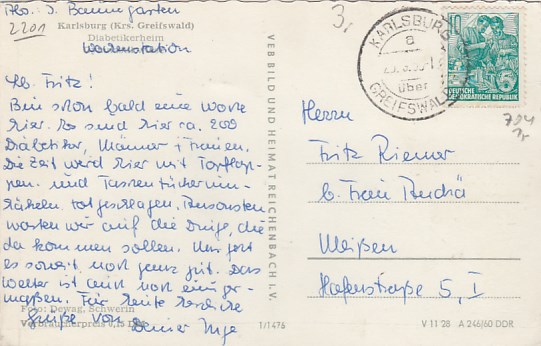 Abs.: I. Baumgarten
2201 Karlsburg (Krs. Greifswald)
Diabetikerheim
Lb. Fritz!
Bin schon bald eine Woche
hier. Es sind hier ca. 200
Diabetiker, Männer + Frauen.
Die Zeit wird hier mit Topflap-
pen und Taschentücher um-
häkeln totgeschlagen. Ansonsten
warten wir auf die Dinge, die
da kommen sollen. Uns geht
es soweit noch ganz gut. Das
Wetter ist auch noch einiger-
maßen. Für heute herzliche
Grüße von Deiner Inge
Foto: Dewag, Schwerin
Verbraucherpreis 0,15 DM
1/1476
VEB BILD UND HEIMAT REICHENBACH I. V.
3,
KARLSBURG
a
über
GREIFSWALD
10
5
DEUTSCHE
DEMOKRATISCHE REPUBLIK
704
Herrn
Fritz Riemer
b. Frau
Meißen
Hafenstraße 5, I
V 11 28 A 246/60 DDR